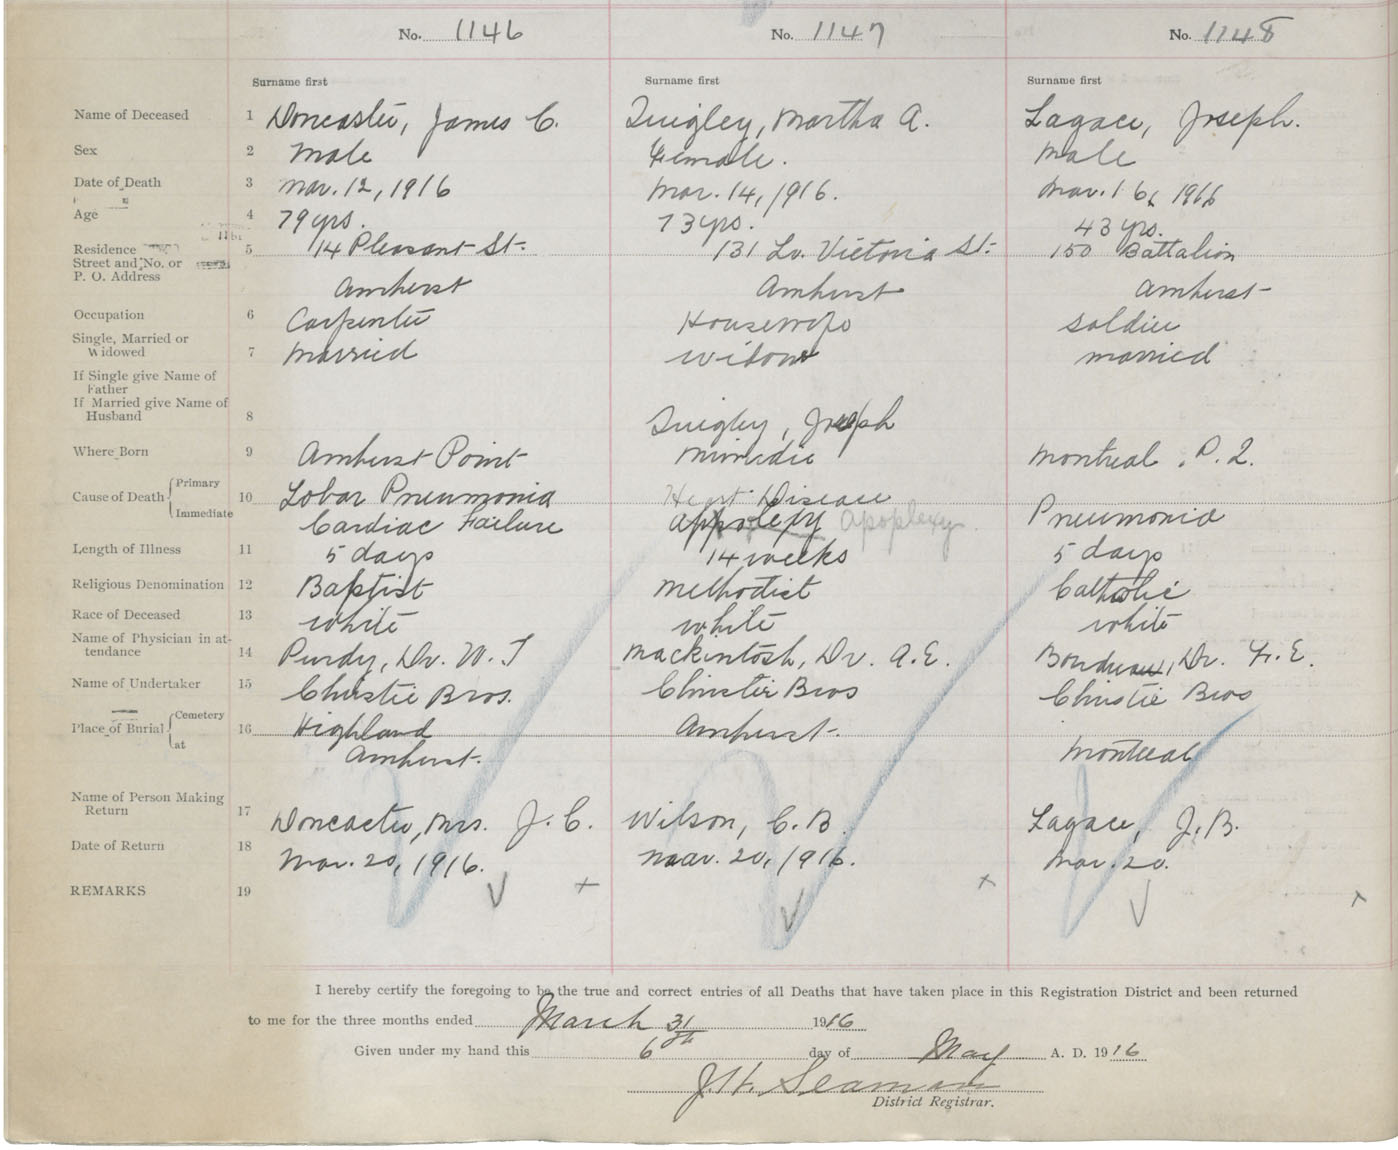 No. 1146 No. 1147 No. 1148
Surname first Surname first Surname first
Name of Deceased 1 Doncaster, James C. Quigley, Martha A. Lagace, Joseph.
Sex 2 Male Female. Male
Date of Death 3 Mar. 12, 1916 Mar. 14, 1916. Mar. 16, 1916
Age 4 79 yrs. 73 yrs. 43 yrs.
Residence 5 14 Pleasant St. 131 Lr. Victoria St. 150 Battalion
Street and No. or
P. O. Address Amherst Amherst Amherst
Occupation 6 Carpenter Housewife Soldier
Single, Married or
Widowed 7 Married Widow married
If Single give Name of
Father
If Married give Name of
Husband 8 Quigley, Joseph
Where Born 9 Amherst Point Minudie Montreal, P.Q.
Cause of Death Primary 10 Lobar Pneumonia Heart Disease
Immediate Cardiac Failure Appolexy Apoplexy Pneumonia
Length of Illness 11 5 days 14 weeks 5 days
Religious Denomination 12 Baptist Methodist Catholic
Race of Deceased 13 White White White
Name of Physician in at-
tendance 14 Purdy, Dr. W. T Mackintosh, Dr. A.E. Dr. F. E.
Name of Undertaker 15 Christie Bros. Christie Bros Christie Bros
Place of Burial Cemetery 16 Highland Amherst.
at Amherst. Montreal
Name of Person Making
Return 17 Doncaster, Mrs. J. C. Wilson, C. B. Lagace, J. B.
Date of Return 18 Mar. 20, 1916. Mar. 20, 1916. Mar. 20.
REMARKS 19
I hereby certify the foregoing to be the true and correct entries of all Deaths that have taken place in this Registration District and been returned
to me for the three months ended March 31 1916
Given under my hand this 6th day of May A. D. 1916
J.H. Seaman
District Registrar.